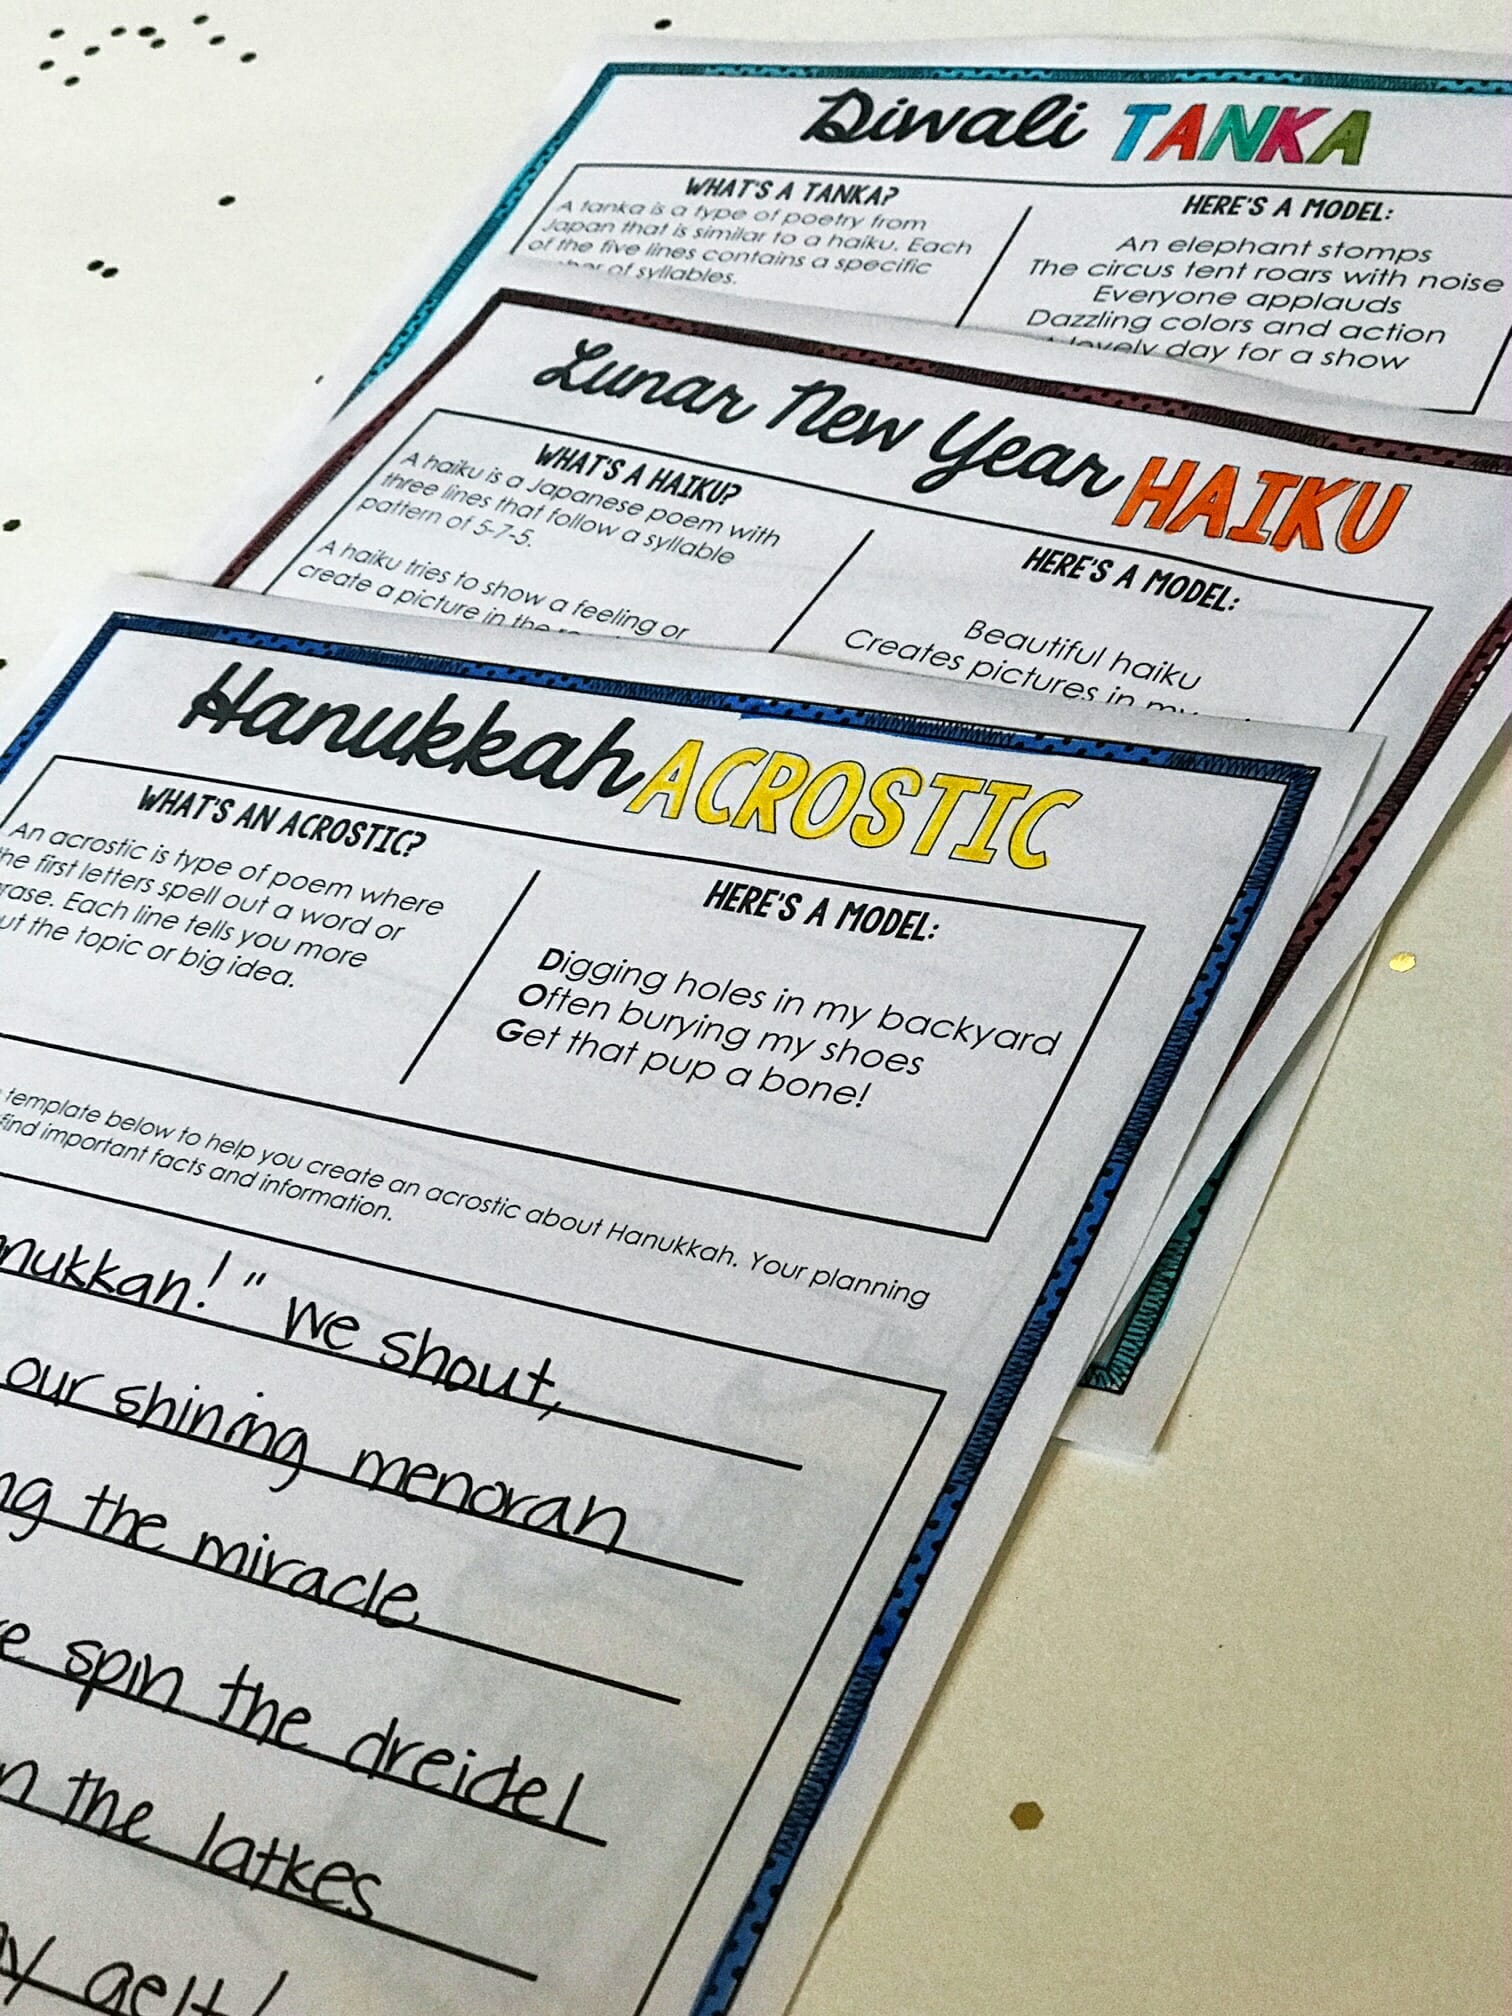 Diwali TANKA
WHAT'S A TANKA?
A tanka is a type of poetry from
Japan that is similar to a haiku. Each
of the five lines contains a specific
of syllables.
HERE'S A MODEL:
An elephant stomps
The circus tent roars with noise
Everyone applauds
Dazzling colors and action
lovely day for a show
Lunar New Year HAIKU
WHAT'S A HAIKU?
A haiku is a Japanese poem with
three lines that follow a syllable
pattern of 5-7-5.
A haiku tries to show a feeling or
create a picture in the
HERE'S A MODEL:
Beautiful haiku
Creates pictures in my
Hanukkah ACROSTIC
WHAT'S AN ACROSTIC?
An acrostic is type of poem where
the first letters spell out a word or
rase. Each line tells you more
ut the topic or big idea.
HERE'S A MODEL:
Digging holes in my backyard
Often burying my shoes
Get that pup a bone!
template below to help you create an acrostic about Hanukkah. Your planning
find important facts and information.
nukkah!" we shout,
our shining menorah
ng the miracle
e spin the dreidel
n the latkes
y gelt!